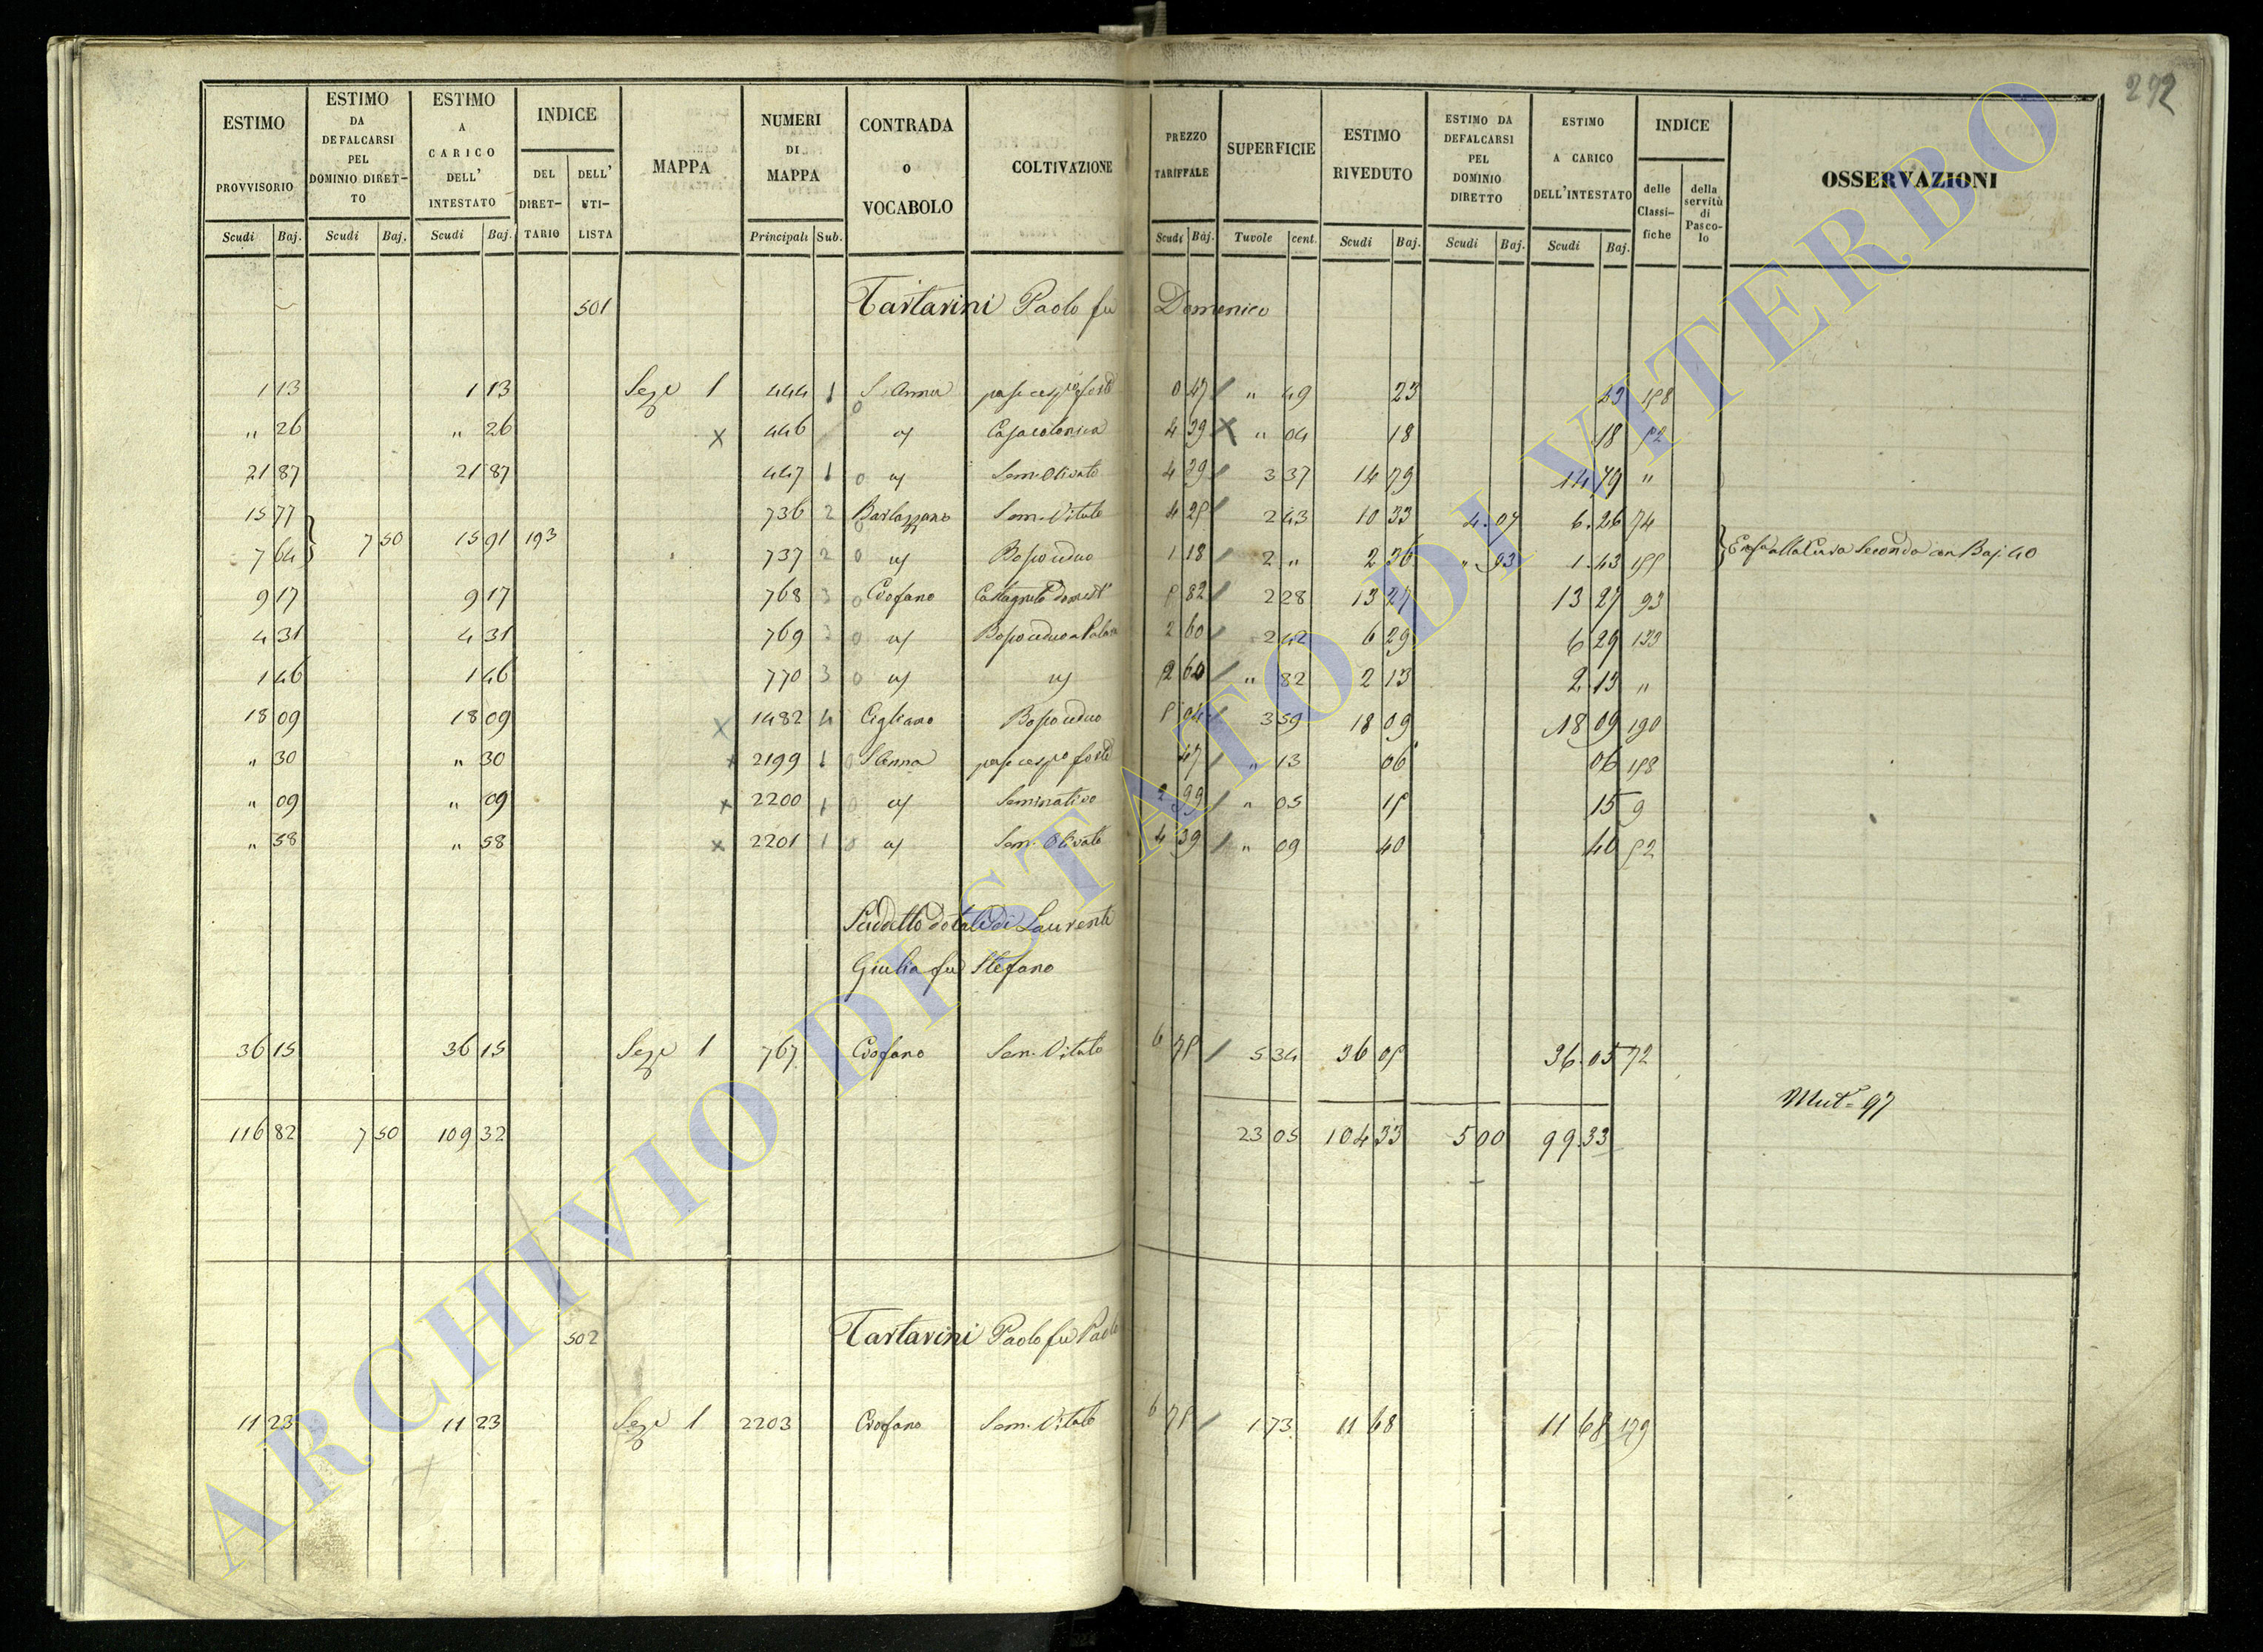 292
ESTIMO PROVVISORIO Scudi Baj.
ESTIMO DA DEFALCARSI PEL DOMINIO DIRET-TO Scudi Baj.
ESTIMO A CARICO DELL' INTESTATO Scudi Baj.
INDICE DEL DIRET-TARIO DELL' UTI-LISTA
MAPPA
NUMERI DI MAPPA Principali Sub.
CONTRADA o VOCABOLO
COLTIVAZIONE
PREZZO TARIFFALE Scudi Baj.
SUPERFICIE Tavole cent.
ESTIMO RIVEDUTO Scudi Baj.
ESTIMO DA DEFALCARSI PEL DOMINIO DIRETTO Scudi Baj.
ESTIMO A CARICO DELL'INTESTATO Scudi Baj.
INDICE delle Classi-fiche della servitù di Pasco-lo
OSSERVAZIONI
501 Tartarini Paolo fu Domenico
1 13 1 13 Sez.e 1 444 1 S. Anna 0 47 " 49 23 23 158
" 26 " 26 446 Casa colonica 4 39 " 04 18 18 52
21 87 21 87 447 1 Sem. Olivato 4 39 3 37 14 79 14 79 "
15 77 736 2 Barlazzano Sem. Vitato 4 25 2 43 10 33 4.07 6.26 74
7 64 7 50 15 91 193 737 2 Bosco ceduo 1 18 2 " 2 36 " 93 1.43 155 alla Curia Seconda con Baj. 40
9 17 9 17 768 3 Crofano Castagneto domest.o 5 82 2 28 13 27 13 27 93
4 31 4 31 769 3 Bosco ceduo a 2 60 2 42 6 29 6 29 133
1 46 1 46 770 3 2 60 " 82 2 13 2.13 "
18 09 18 09 1482 4 Cigliano Bosco ceduo 5 04 3 59 18 09 18 09 190
" 30 " 30 2199 1 S. Anna 47 " 13 06 06 158
" 09 " 09 2200 1 Seminativo 2 99 " 05 15 15 9
" 58 " 58 2201 1 Sem. Olivato 4 39 " 09 40 40 52
Suddetto dotale di Laurenti
Giulia fu Stefano
36 15 36 15 Sez.e 1 767 Crofano Sem. Vitato 6 75 5 34 36 05 36.05 72
Mut.e 97
116 82 7 50 109 32 23 05 104 33 5 00 99.33
502 Tartarini Paolo fu Paolo
11 23 11 23 Sez.e 1 2203 Crofano Sem. Vitato 6 75 1 73 11 68 11 68 179
ARCHIVIO DI STATO DI VITERBO